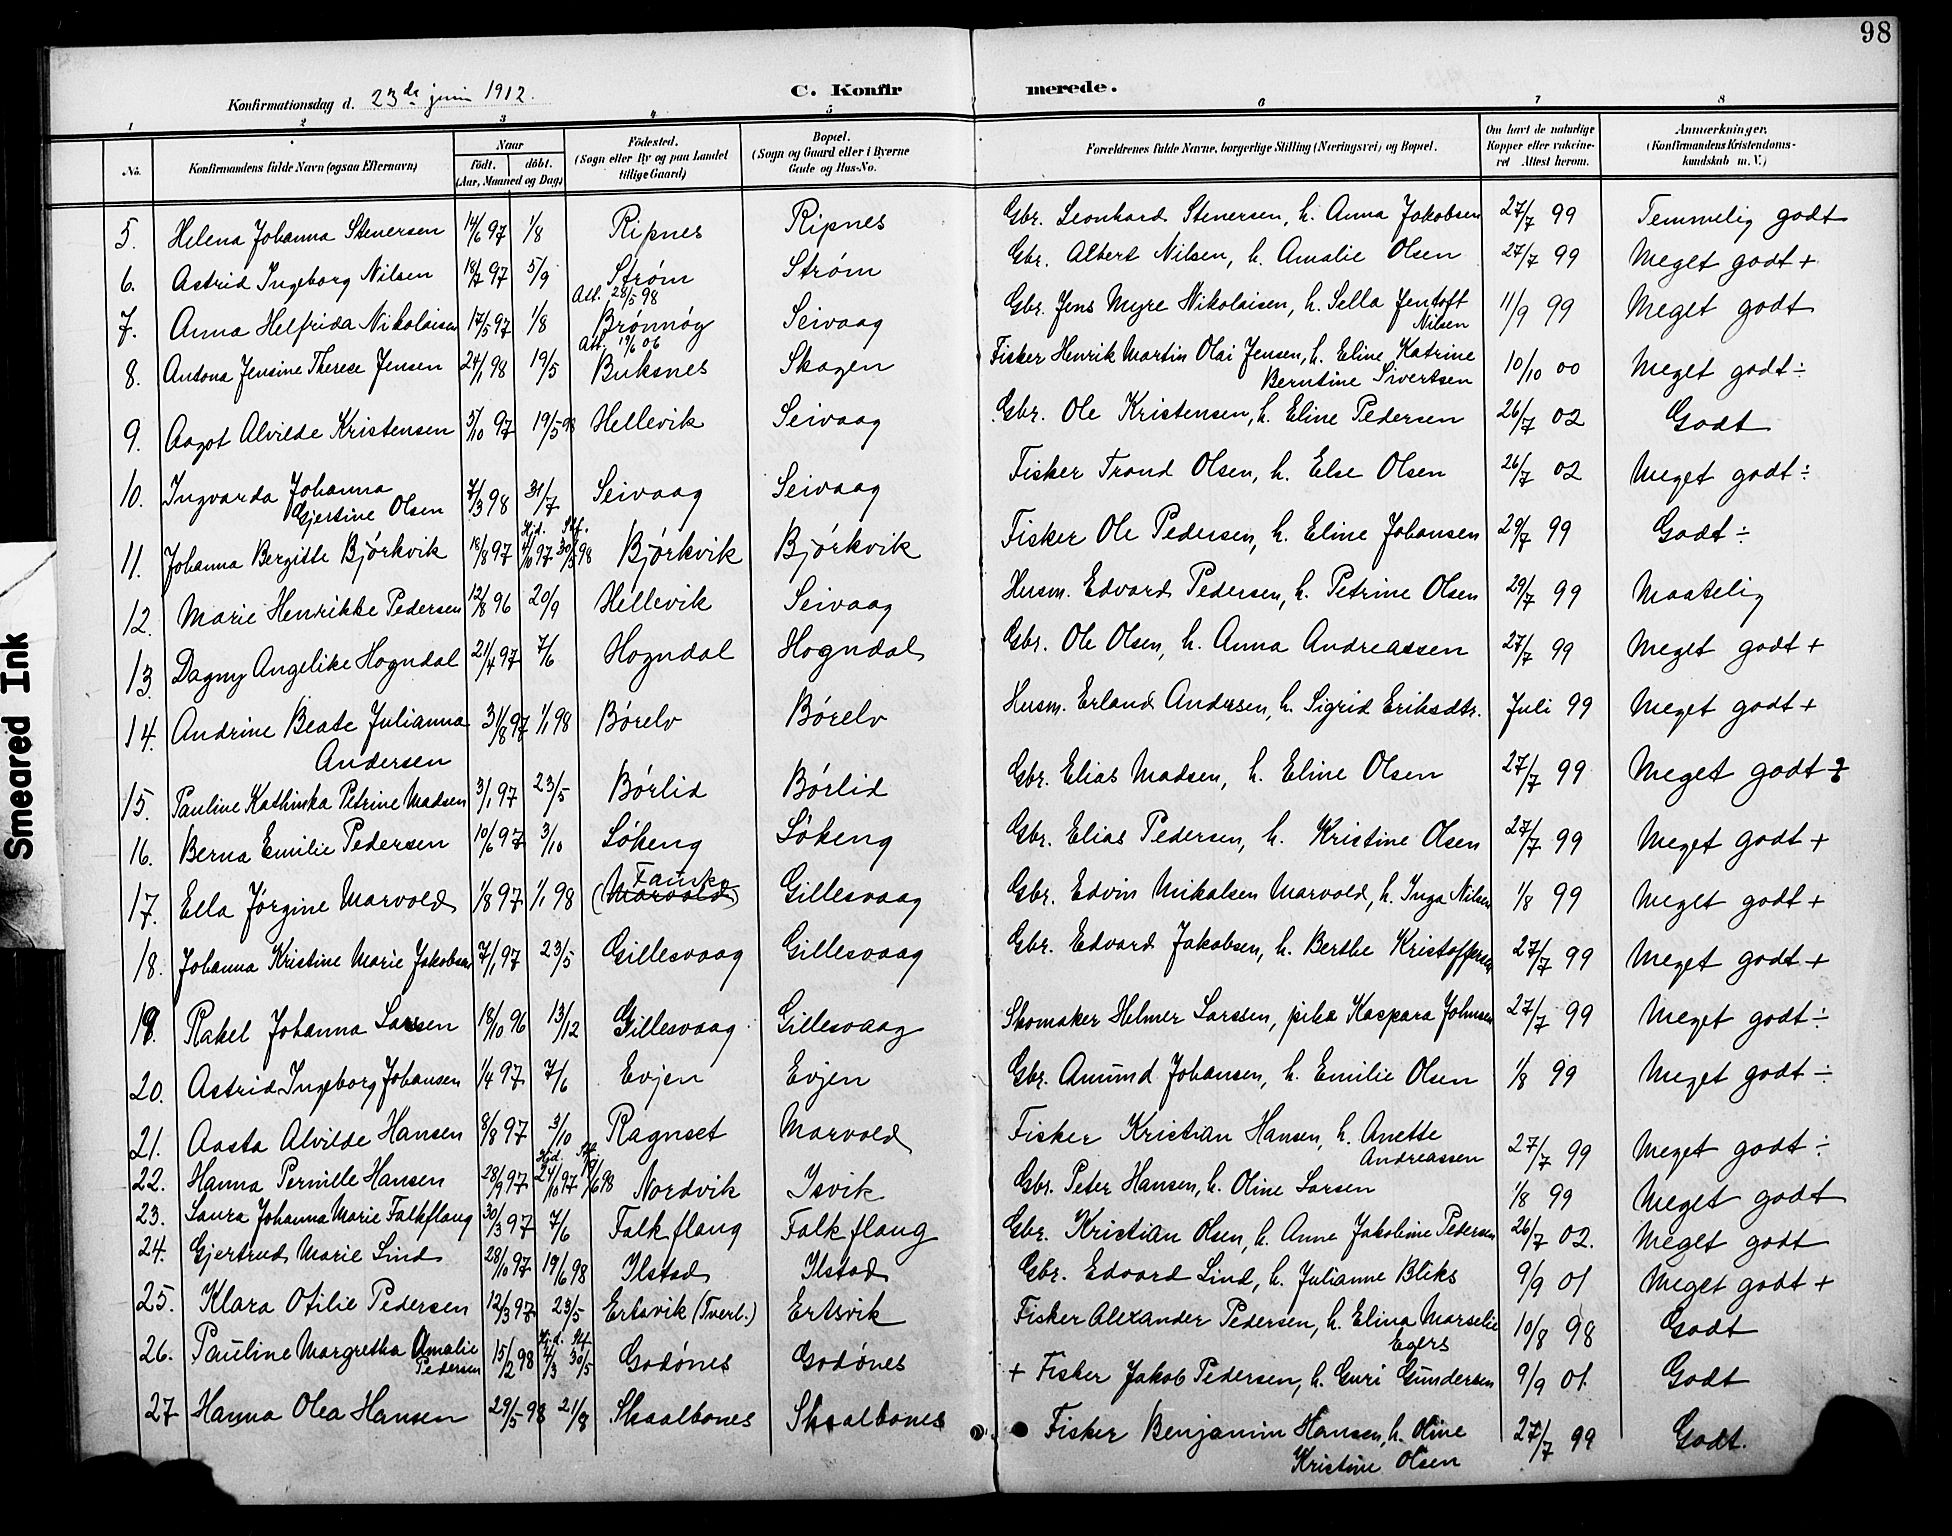 98
Konfirmationsdag d. 23de juni 1912.
C. Konfirmerede.
1 2 3 4 5 6 7 8
No. Konfirmandens fulde Navn (ogsaa Efternavn) Naar født. døbt. (Aar, Maaned og Dag) Fødested. (Sogn eller By og paa Landet tillige Gaard) Bopæl. (Sogn og Gaard eller i Byerne Gade og Hus-No. Forældrenes fulde Navne, borgerlige Stilling (Næringsvei) og Bopæl. Om havt de naturlige Kopper eller vakcineret Attest herom. Anmærkninger. (Konfirmandens Kristendomskundskab m. V.)
5. Helena Johanna Stenersen 14/6 97 1/8 Ripnes Ripnes Gbr. Leonhard Stenersen, h. Anna Jakobsen 27/7 99 Temmelig godt
6. Astrid Ingeborg Nilsen 18/7 97 5/9 Strøm Strøm Gbr. Albert Nilsen, h. Amalie Olsen 27/7 99 Meget godt +
7. Anna Helfrida Nikolaisen 17/5 97 1/8 Att. 28/5 98 Brønnøy Seivaag Gbr. Jens Myre Nikolaisen, h. Sella Jentoft Nilsen 11/9 99 Meget godt
8. Antona Jensine Therese Jensen 24/1 98 19/5 Att. 19/6 06 Buksnes Skagen Fisker Henrik Martin Olai Jensen, h. Eline Katrine Berntine Sivertsen 10/10 00 Meget godt ÷
9. Aagot Alvilde Kristensen 5/10 97 19/5 98 Hellevik Seivaag Gbr. Ole Kristensen, h. Eline Pedersen 26/7 02 Godt
10. Ingvarda Johanna Gjertine Olsen 7/3 98 31/7 Seivaag Seivaag Fisker Trond Olsen, h. Else Olsen 26/7 02 Meget godt ÷
11. Johanna Bergitte Bjørkvik 18/8 97 Hjd. 4/10 97 Stf. 30/5 98 Bjørkvik Bjørkvik Fisker Ole Pedersen, h. Eline Johansen 29/7 99 Godt ÷
12. Marie Henrikke Pedersen 12/8 96 20/9 Hellevik Seivaag Husm. Edvard Pedersen, h. Petrine Olsen 29/7 99 Maatelig
13. Dagny Angelike Hogndal 21/4 97 7/6 Hogndal Hogndal Gbr. Ole Olsen, h. Anna Andreassen 27/7 99 Meget godt +
14. Andrine Beate Julianna Andersen 31/8 97 1/1 98 Børelv Børelv Husm. Erland Andersen, h. Sigrid Eriksdtr. Juli 99 Meget godt +
15. Pauline Kathinka Petrine Madsen 3/1 97 23/5 Børlid Børlid Gbr. Elias Madsen, h. Eline Olsen 27/7 99 Meget godt
16. Berna Emilie Pedersen 10/6 97 3/10 Løkeng Løkeng Gbr. Elias Pedersen, h. Kristine Olsen 27/7 99 Meget godt +
17. Ella Jørgine Marvold 1/8 97 1/1 98 (Marvold) Fauske Gillesvaag Gbr. Edvin Mikalsen Marvold, h. Inga Nilsen 1/8 99 Meget godt +
18. Johanna Kristine Marie Jakobsen 7/1 97 23/5 Gillesvaag Gillesvaag Gbr. Edvard Jakobsen, h. Berthe Kristoffersen 27/7 99 Meget godt +
19. Rakel Johanna Larsen 18/10 96 13/12 Gillesvaag Gillesvaag Skomaker Helmer Larssen, pike Kaspara Johnsen 27/7 99 Meget godt ÷
20. Astrid Ingeborg Johansen 1/4 97 7/6 Evjen Evjen Gbr. Amund Johansen, h. Emilie Olsen 1/8 99 Meget godt ÷
21. Aasta Alvilde Hansen 8/8 97 3/10 Ragnset Marvold Fisker Kristian Hansen, h. Anette Andreassen 27/7 99 Meget godt ÷
22. Hanna Pernille Hansen 28/9 97 Hjd. 24/10 97 Stf. 19/6 98 Nordvik Isvik Gbr. Peter Hansen, h. Oline Larsen 1/8 99 Meget godt
23. Laura Johanna Marie Falkflaug 30/3 97 7/6 Falkflaug Falkflaug Gbr. Kristian Olsen, h. Anne Jakobine Pedersen 26/7 02. Meget godt
24. Gjertrud Marie Lind 28/10 97 19/6 98 Ilstad Ilstad Gbr. Edvard Lind, h. Julianne Bliks 9/9 01 Meget godt +
25. Klara Otilie Pedersen 12/3 97 23/5 Ertsvik (Tverl.) Ertsvik Fisker Alexander Pedersen, h. Elina Marselie Egers 10/8 98 Godt
26. Pauline Margretha Amalie Pedersen 15/2 98 Hjd. 4/3 Stf. 30/5 Godønes Godønes + Fisker Jakob Pedersen, h. Guri Gundersen 9/9 01. Godt
27 Hanna Olea Hansen 29/5 98 21/8 Skaalbones Skaalbones Fisker Benjamin Hansen, h. Oline Kristine Olsen 27/7 99 Godt.
Smeared Ink